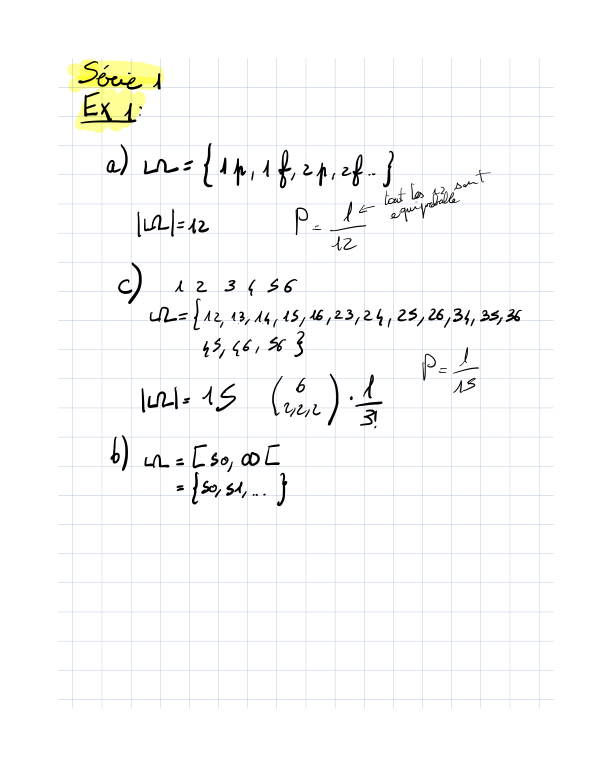 Série 1
Ex 1:
a) Ω = {1p, 1f, 2p, 2f..}
|Ω| = 12    P = 1/12 ← tout les 12 sont equiprobable
c) 1 2 3 4 5 6
Ω = {12, 13, 14, 15, 16, 23, 24, 25, 26, 34, 35, 36
45, 46, 56}
P = 1/15
|Ω| = 15    (6 2,2,2) · 1/3!
b) Ω = [50, ∞[
= {50, 51, ...}